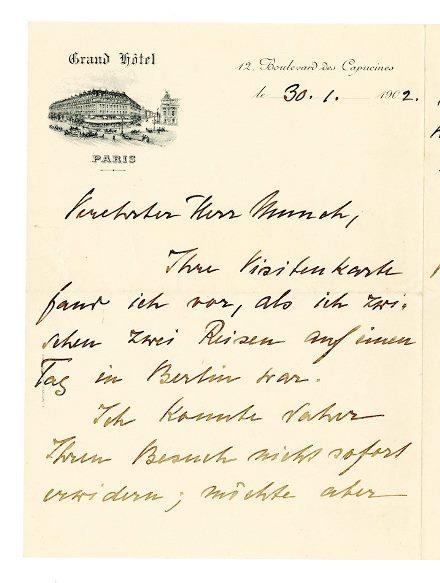 Grand Hôtel
12, Boulevard des Capucines
le 30. 1. 1902.
PARIS
Verehrter Herr Munch,
Ihre Visitenkarte
fand ich vor, als ich zwi-
schen zwei Reisen auf einen
Tag in Berlin war.
Ich konnte daher
Ihren Besuch nicht sofort
erwidern; möchte aber